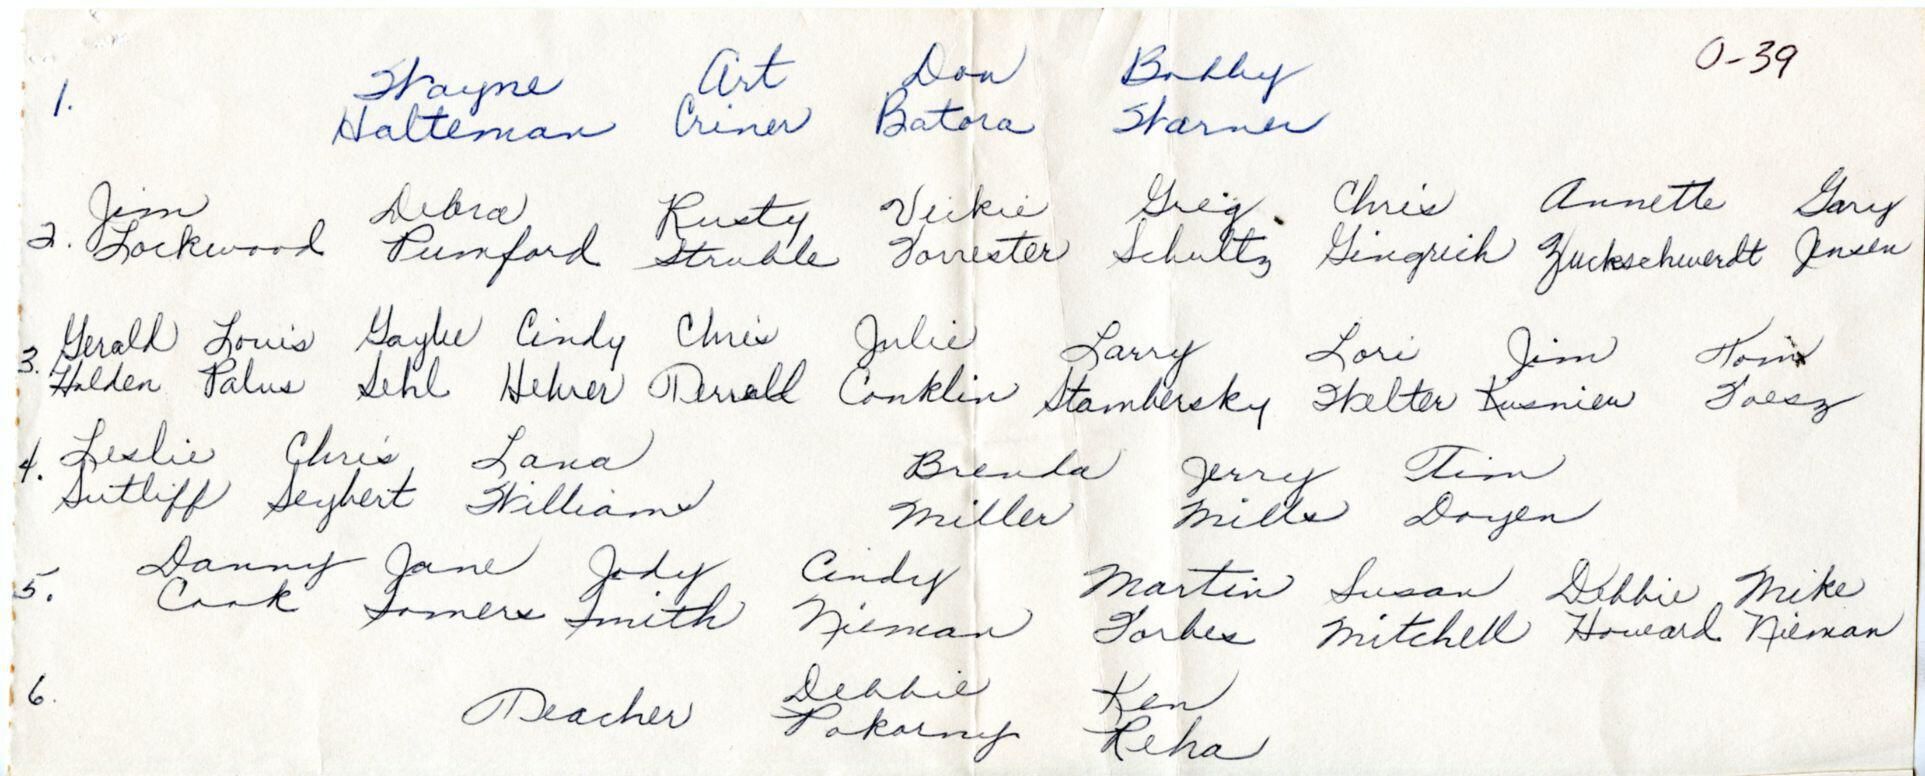 O-39
1. Wayne Art Don Bobby
Halteman Criner Batora Warner
2. Jim Debra Rusty Vickie Greg Chris Annette Gary
Lockwood Pumford Struble Forrester Schultz Gingrich Zuckschwerdt Jensen
3. Gerald Louis Gaylee Cindy Chris Julie Larry Lori Jim Tom
Holden Palus Sehl Hehrer Terrall Conklin Stambersky Welter Kusnieu Foesz
4. Leslie Chris Lana Brenda Jerry Tim
Sutliff Seybert Williams Miller Mills Doyen
5. Danny Jane Jody Cindy Martin Susan Debbie Mike
Cook Somers Smith Nieman Forbes Mitchell Howard Nieman
6. Teacher Debbie Ken
Pokorny Reha